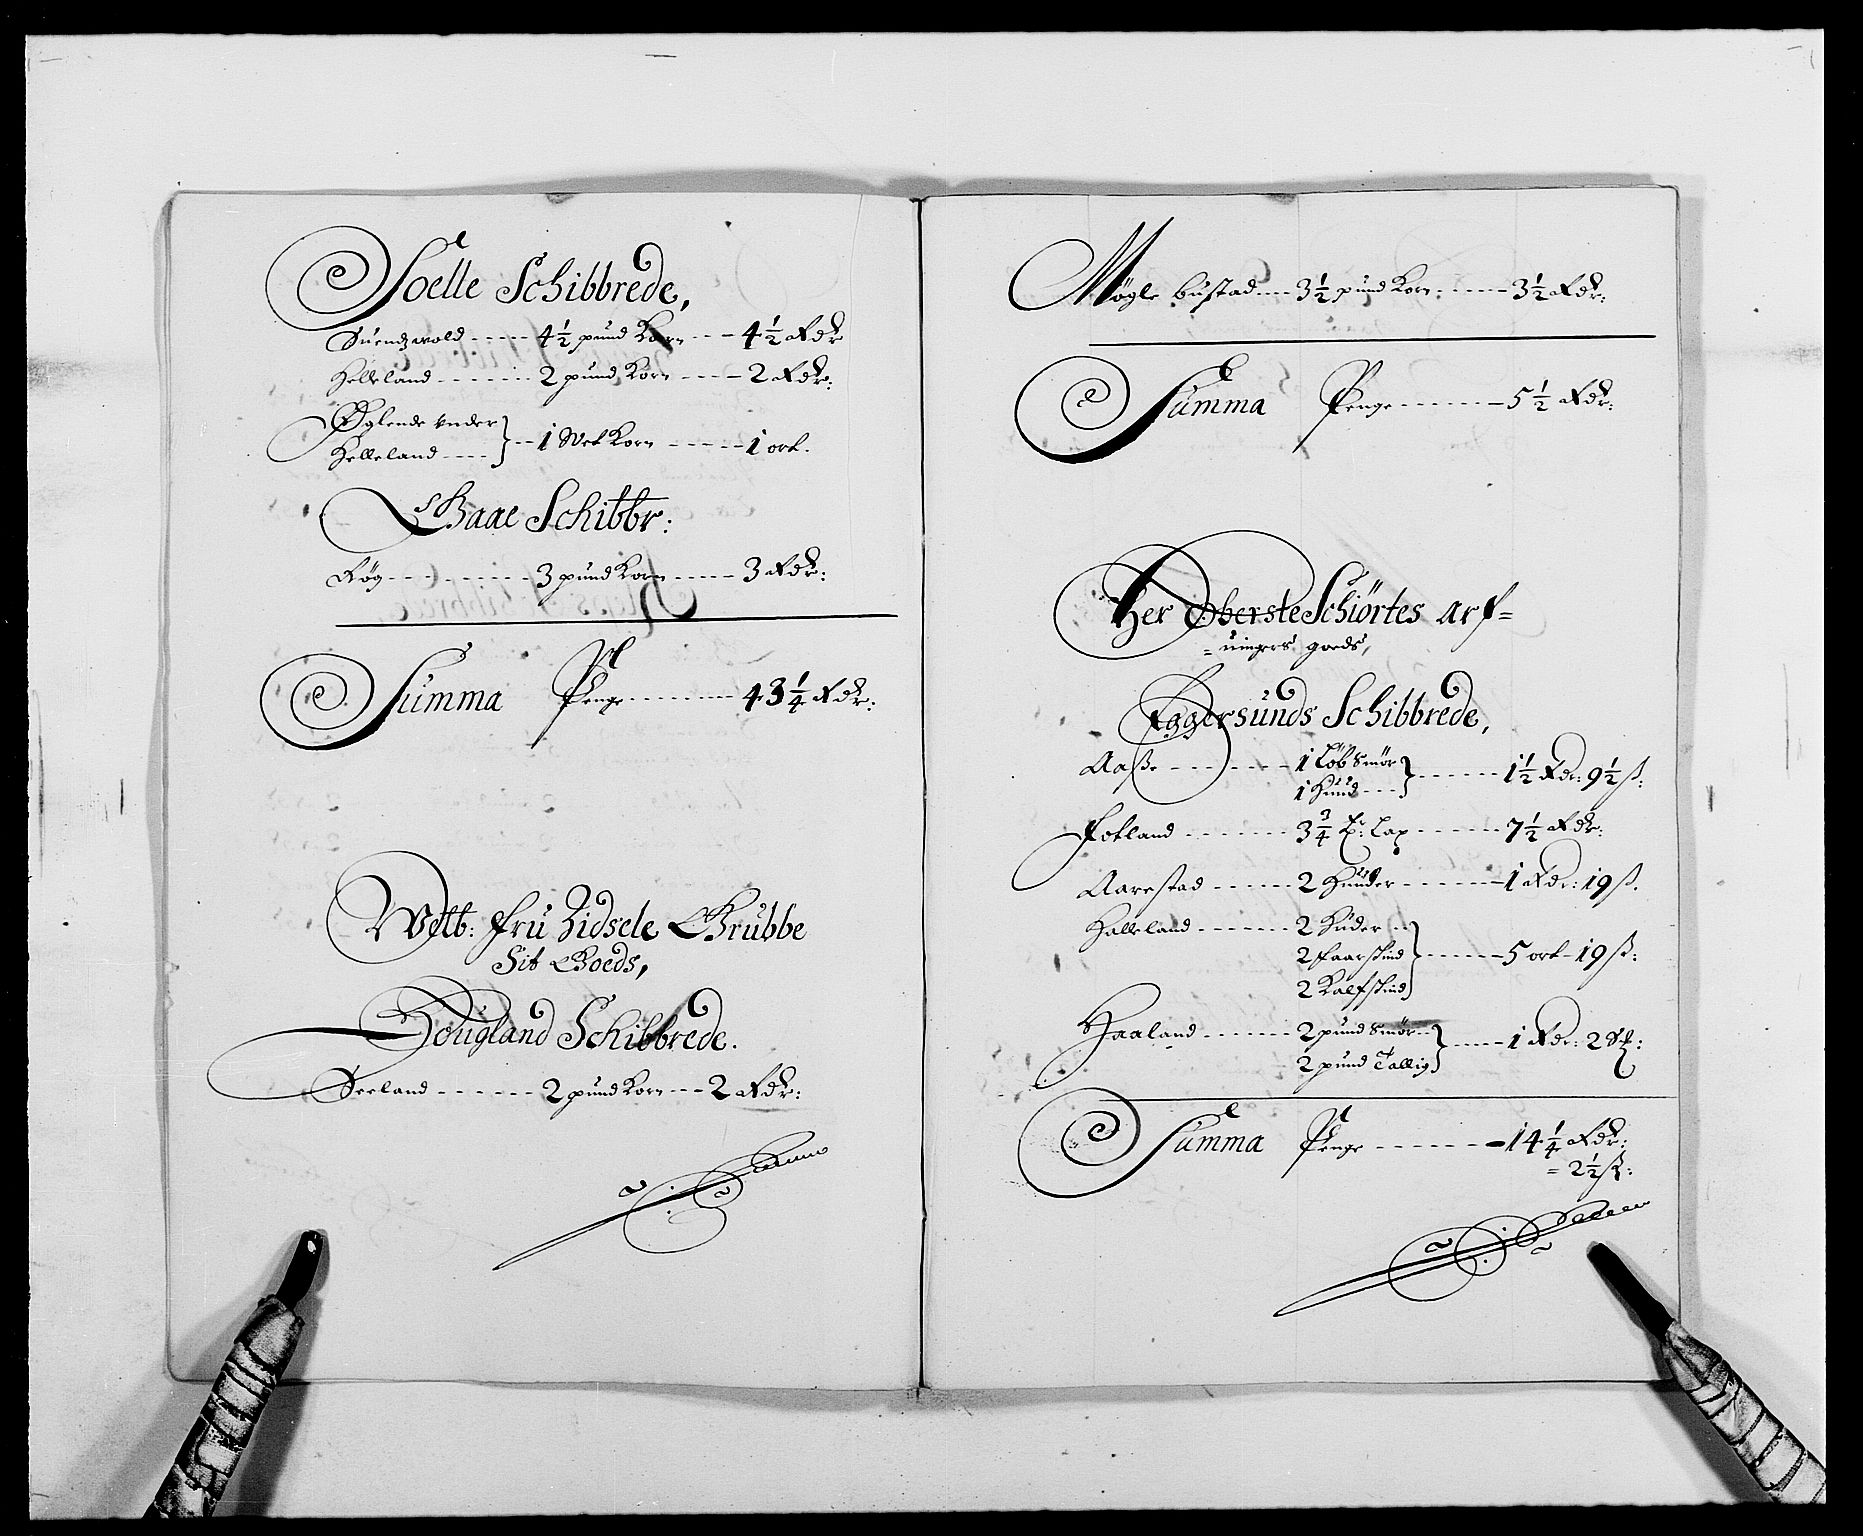 Soelle Schibbrede,
Suendzwold ----- 4½ pund Korn --- 4½ Rdr
Helleland ------ 2 pund Korn ---- 2 Rdr:
Øglende vnder
Helleland ---- } -- 1 Wet Korn ----- 1 ort.
Gaae Schibbr:
Røg --------- 3 pund Korn ----- 3 Rdr:
Summa Penge -------- 43¼ Rdr:
Welb: fru Zidsele Grubbe
Sit Goeds,
Hougland Schibbrede.
Seeland ------ 2 pund Korn --- 2 Rdr:
Møgle bustad --- 3½ pund Korn ----- 3½ Rdr:
Summa Penge ------- 5½ Rdr:
Her Oberste Schiörtes arf=
=uingers goeds,
Eggersunds Schibbrede,
Aaße ------- 1 Løb Smør
1 Huud --- } ----- 1½ Rdr: 9½ ß:
Fotland ------ 3¾ Lax ----- 7½ Rdr:
Aarestad ----- 2 Huuder ------ 1 Rdr: 19 ß.
Halleland ------ 2 Huder --
2 faarskind } ----- 5 ort - 19 ß:
2 Kalfskind
Haaland ------ 2 pund Smør --
2 pund Tallig } ---- 1 Rdr: 2 ß:
Summa Penge ------- 14¼ Rdr:
= 2½ ß: